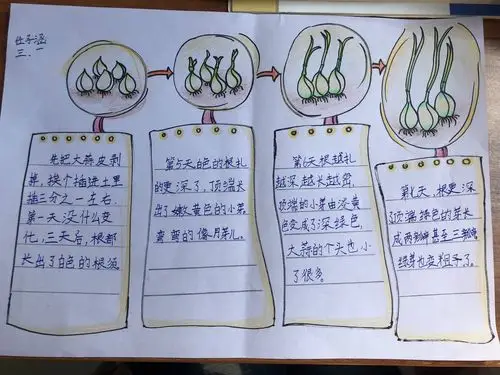 三.一
先把大蒜皮剥
掉，挨个插进土里
插三分之一左右.
第一天没什么变
化，三天后，根部
长出了白色的根须.
第5天白色的根扎
的更深了，顶端长
出了嫩黄色的小芽
弯弯的像月芽儿。
第6天根越扎
越深越长越密.
顶端的小芽由淡黄
色变成了深绿色，
大蒜的个头也小
了很多。
第七天，根更深
了顶端绿色的芽长
成两瓣甚至三瓣
绿芽也变粗了。